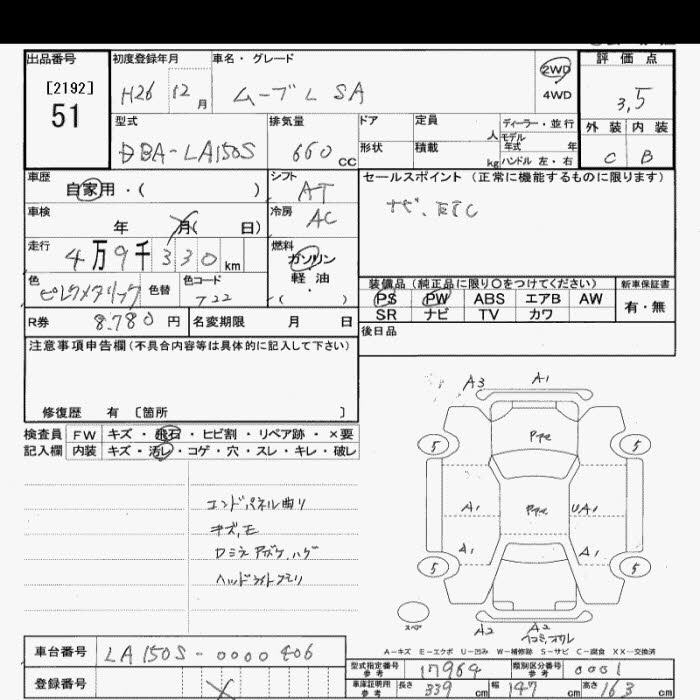 出品番号 初度登録年月 車名・グレード 2WD 評価点
[2192] H26 12月 ムーブL SA 4WD 3,5
51
型式 排気量 ドア 定員 人 ディーラー・並行 外装 内装
モデル年式 年
DBA-LA150S 660 CC 形状 積載 kg ハンドル 左・右 C B
車歴 自家用・( ) シフト AT セールスポイント (正常に機能するものに限ります)
車検 年 月( 日) 冷房 AC ナビ、ETC
走行 4万9千330km 燃料 ガソリン 軽油 ・ ( )
色 色替 色コード T22
装備品 (純正品に限り○をつけてください) 新車保証書
PS PW ABS エアB AW 有・無
SR ナビ TV カワ
R券 8.780 円 名変期限 月 日
後日品
注意事項申告欄(不具合内容等は具体的に記入して下さい)
修復歴 有 〔箇所 〕
検査員 FW キズ・飛石・ヒビ割・リペア跡・×要
記入欄 内装 キズ・汚レ・コゲ・穴・スレ・キレ・破レ
エンドパネル曲り
ヘッドライトクモリ
A3 A1
5 5
A1 UA1
A1 A1
5 5
スペア
A2 A2
A-キズ E-エクボ U-凹み W-補修跡 S-サビ C-腐食 XX-交換済
車台番号 LA150S-0000406
型式指定番号 参考 17964 類別区分番号 参考 0001
登録番号
車庫証明用 参考 長さ 339cm 幅 147cm 高さ 163cm